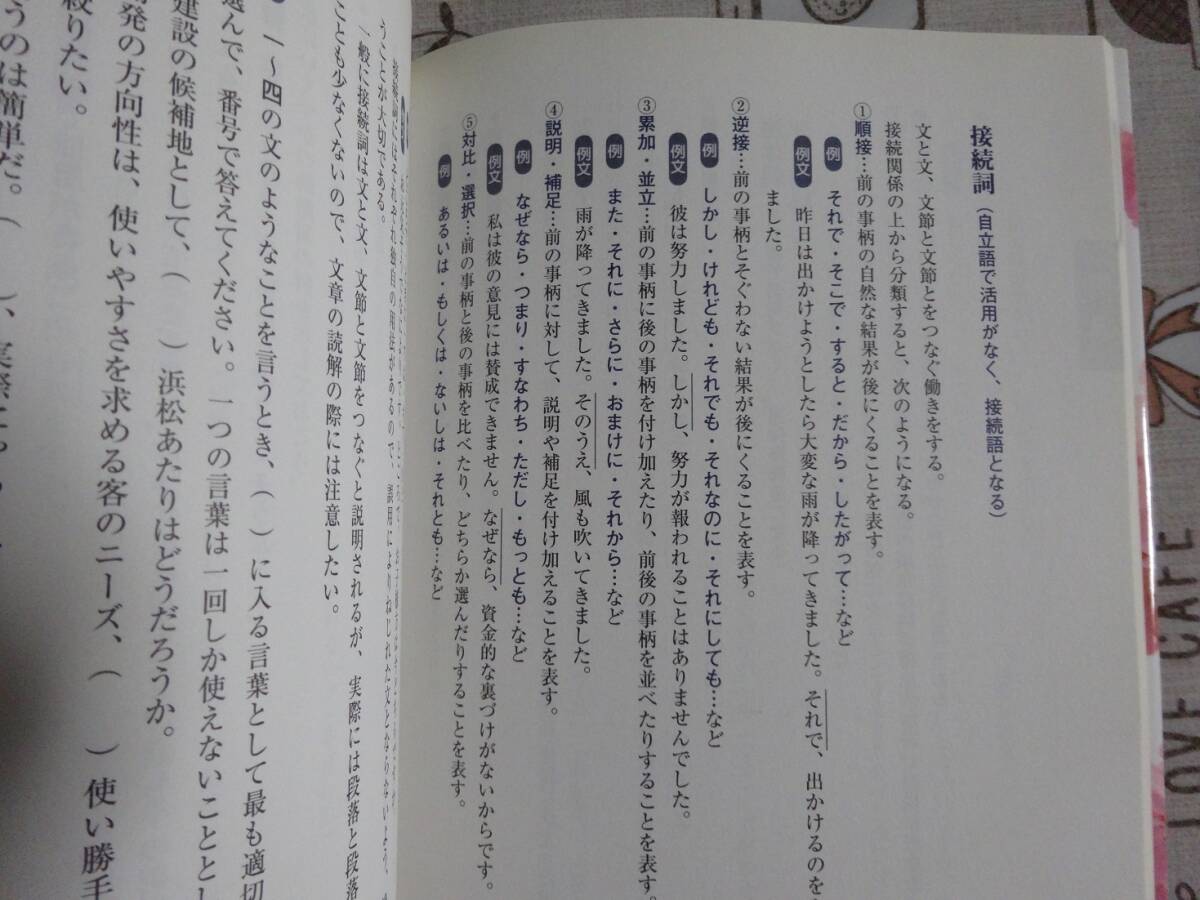 接続詞（自立語で活用がなく、接続語となる）
文と文、文節と文節とをつなぐ働きをする。
接続関係の上から分類すると、次のようになる。
①順接…前の事柄の自然な結果が後にくることを表す。
例 それで・そこで・すると・だから・したがって…など
例文 昨日は出かけようとしたら大変な雨が降ってきました。それで、出かけるのを
ました。
②逆接…前の事柄とそぐわない結果が後にくることを表す。
例 しかし・けれども・それでも・それなのに・それにしても…など
例文 彼は努力しました。しかし、努力が報われることはありませんでした。
③累加・並立…前の事柄に後の事柄を付け加えたり、前後の事柄を並べたりすることを表す。
例 また・それに・さらに・おまけに・それから…など
例文 雨が降ってきました。そのうえ、風も吹いてきました。
④説明・補足…前の事柄に対して、説明や補足を付け加えることを表す。
例 なぜなら・つまり・すなわち・ただし・もっとも…など
例文 私は彼の意見には賛成できません。なぜなら、資金的な裏づけがないからです。
⑤対比・選択…前の事柄と後の事柄を比べたり、どちらか選んだりすることを表す。
例 あるいは・もしくは・ないしは・それとも…など
接続詞にはそれぞれ独自の用法があるので、誤用によりねじれた文とならないよう、
うことが大切である。
一般に接続詞は文と文、文節と文節をつなぐと説明されるが、実際には段落と段落
ことも少なくないので、文章の読解の際には注意したい。
一〜四の文のようなことを言うとき、（　）に入る言葉として最も適切
選んで、番号で答えてください。一つの言葉は一回しか使えないことと
建設の候補地として、（　）浜松あたりはどうだろうか。
発の方向性は、使いやすさを求める客のニーズ、（　）使い勝手
絞りたい。
うのは簡単だ。（　）、実際に
LOVE CAFE